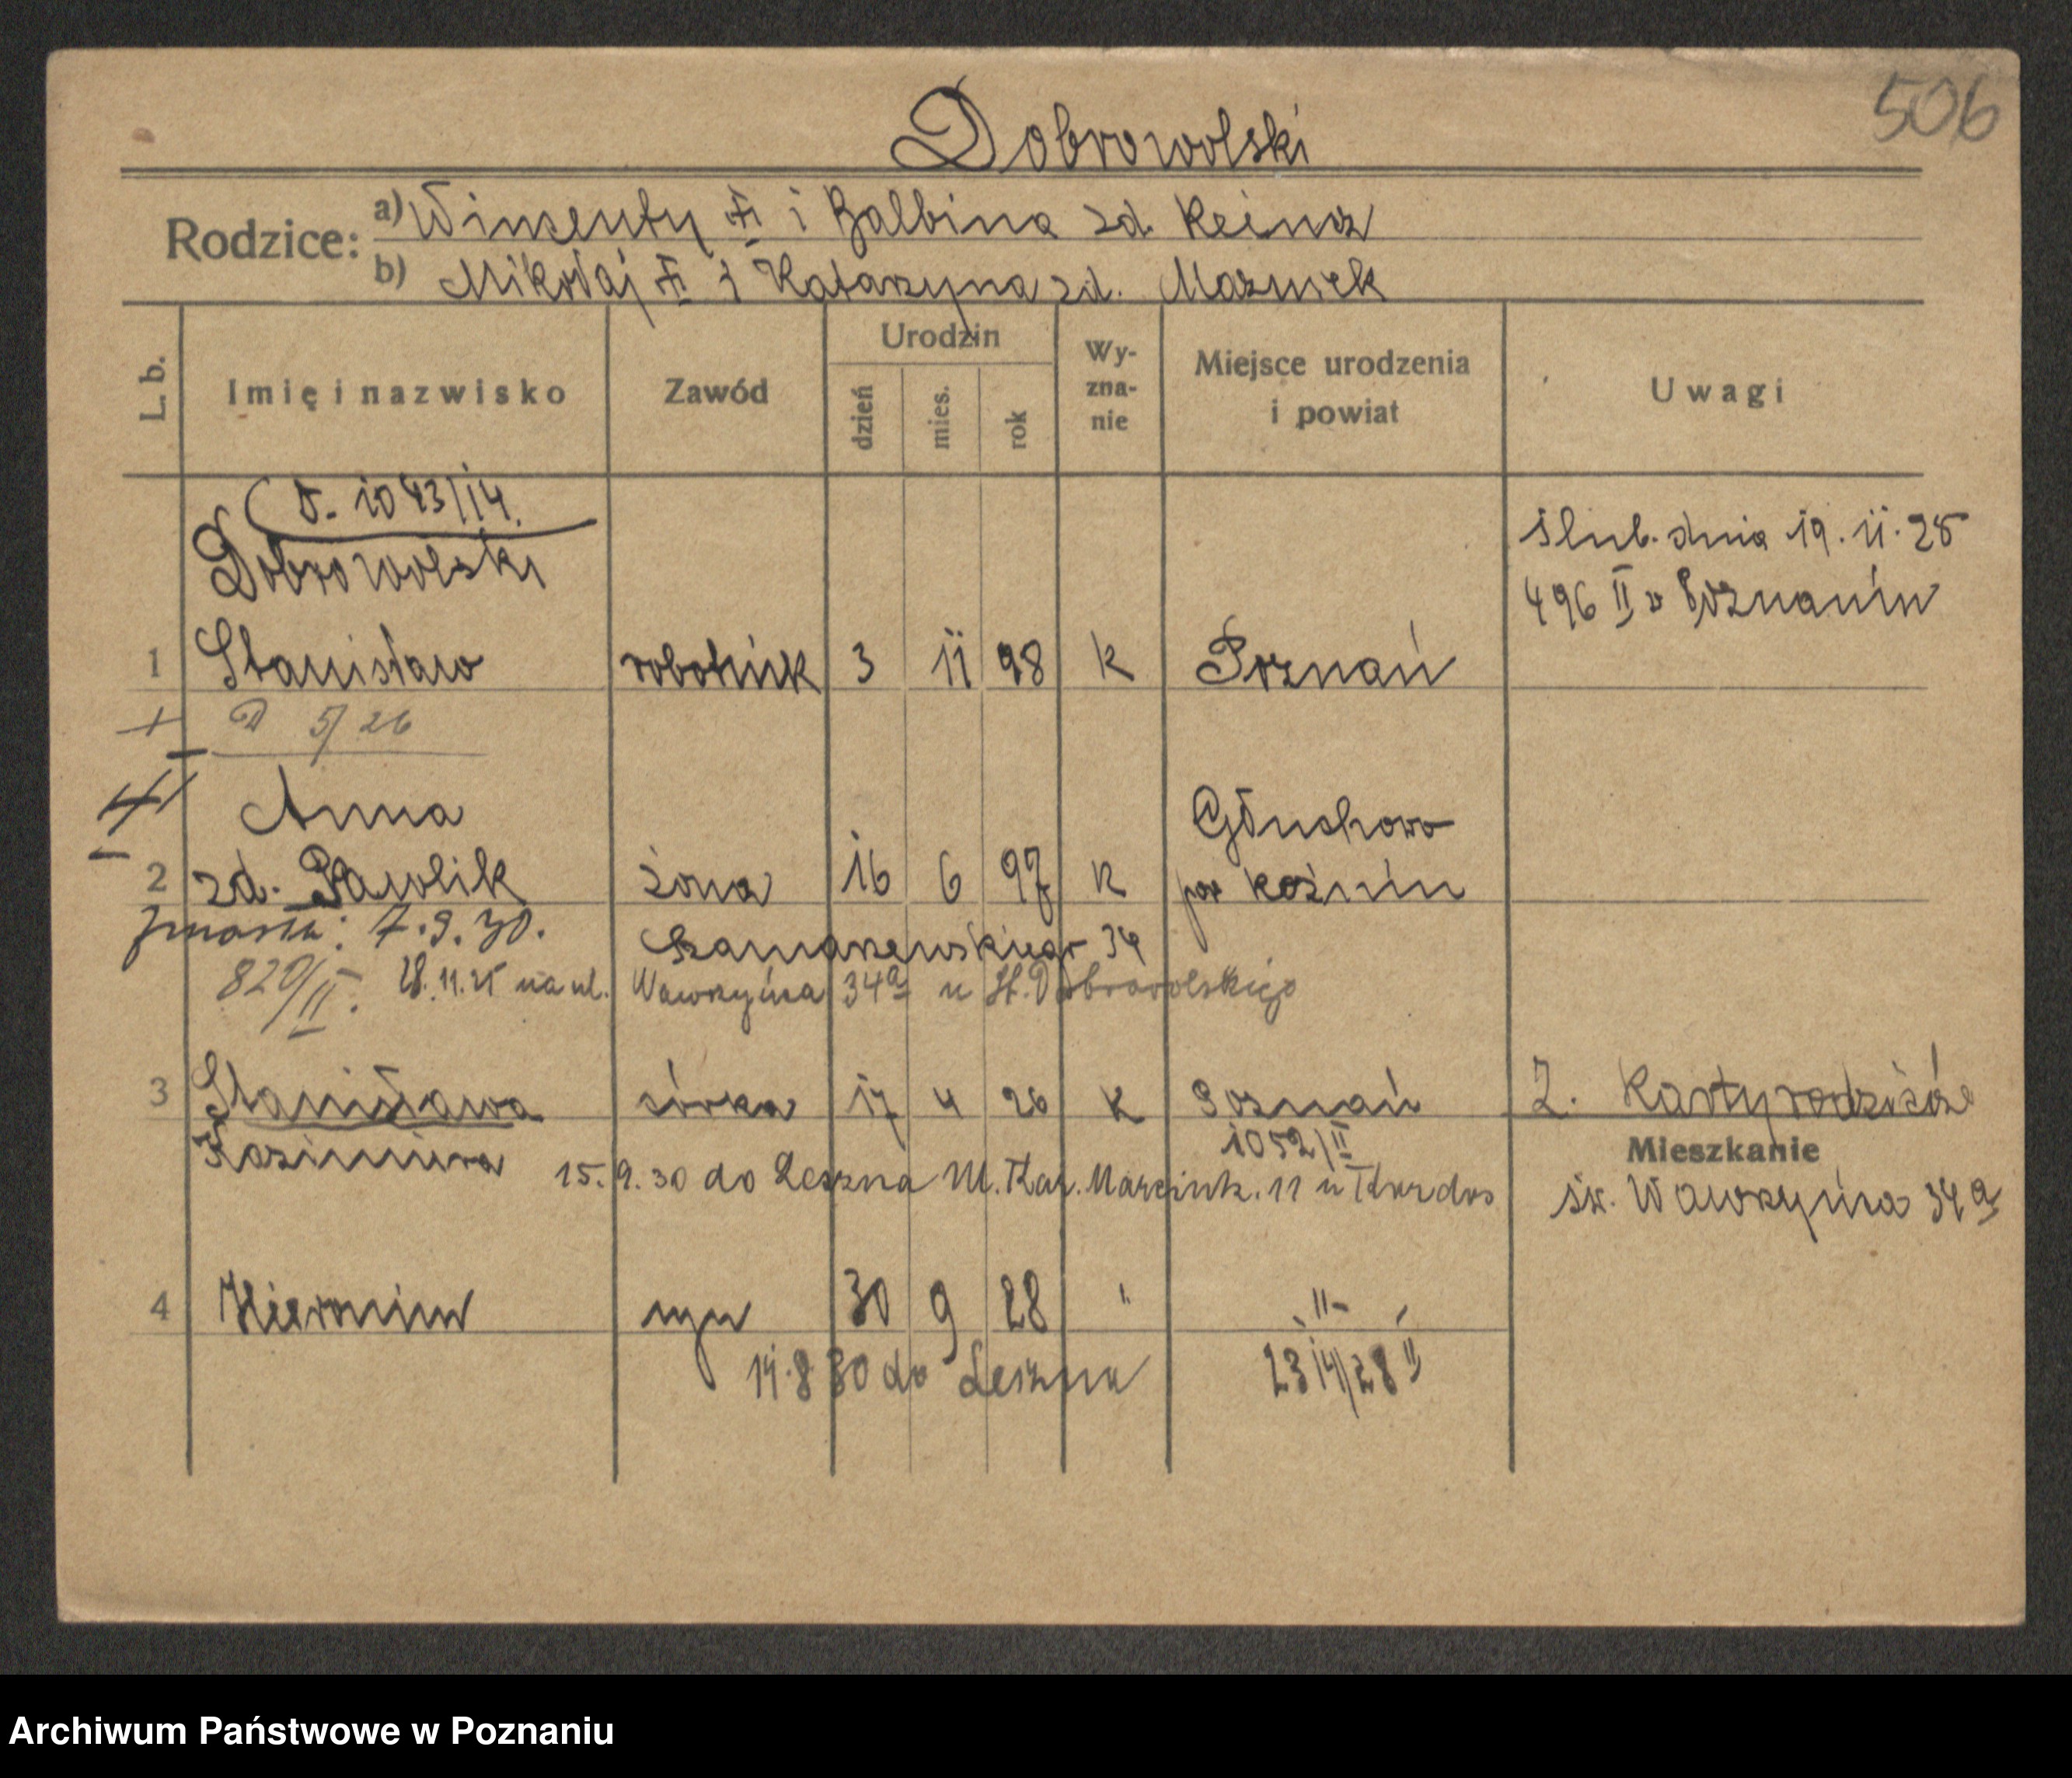 506
Dobrowolski
Rodzice: a) Wincenty i Balbina zd.
b) Mikołaj i Katarzyna zd.
L. b.
Imię i nazwisko
Zawód
Urodzin
dzień
mies.
rok
Wy-
zna-
nie
Miejsce urodzenia
i powiat
Uwagi
1043/14.
Dobrowolski
ślub. dnia 19. 11. 25
496 II w Poznaniu
1 Stanisław robotnik 3 11 98 k Poznań
5/26
Anna
Głuchowo
2 zd. Pawlik żona 16 6 97 k pow Koźmin
zmarła: 7.9.30.
Szamarzewskiego 34
820/II. 28.11.25 na ul. Wawrzyńca 34a u St. Dobrowolskiego
3 Stanisława córka 17 4 26 k Poznań
Z. Karty rodziców
Kazimiera
1052/II
Mieszkanie
15.9.30 do Leszna Ul. Kar. Marcink. 11 u Kurdos
św. Wawrzyńca 34a
4 Hieronim syn 30 9 28 " -"-
14.8 30 do Leszna
2314/28 II
Archiwum Państwowe w Poznaniu